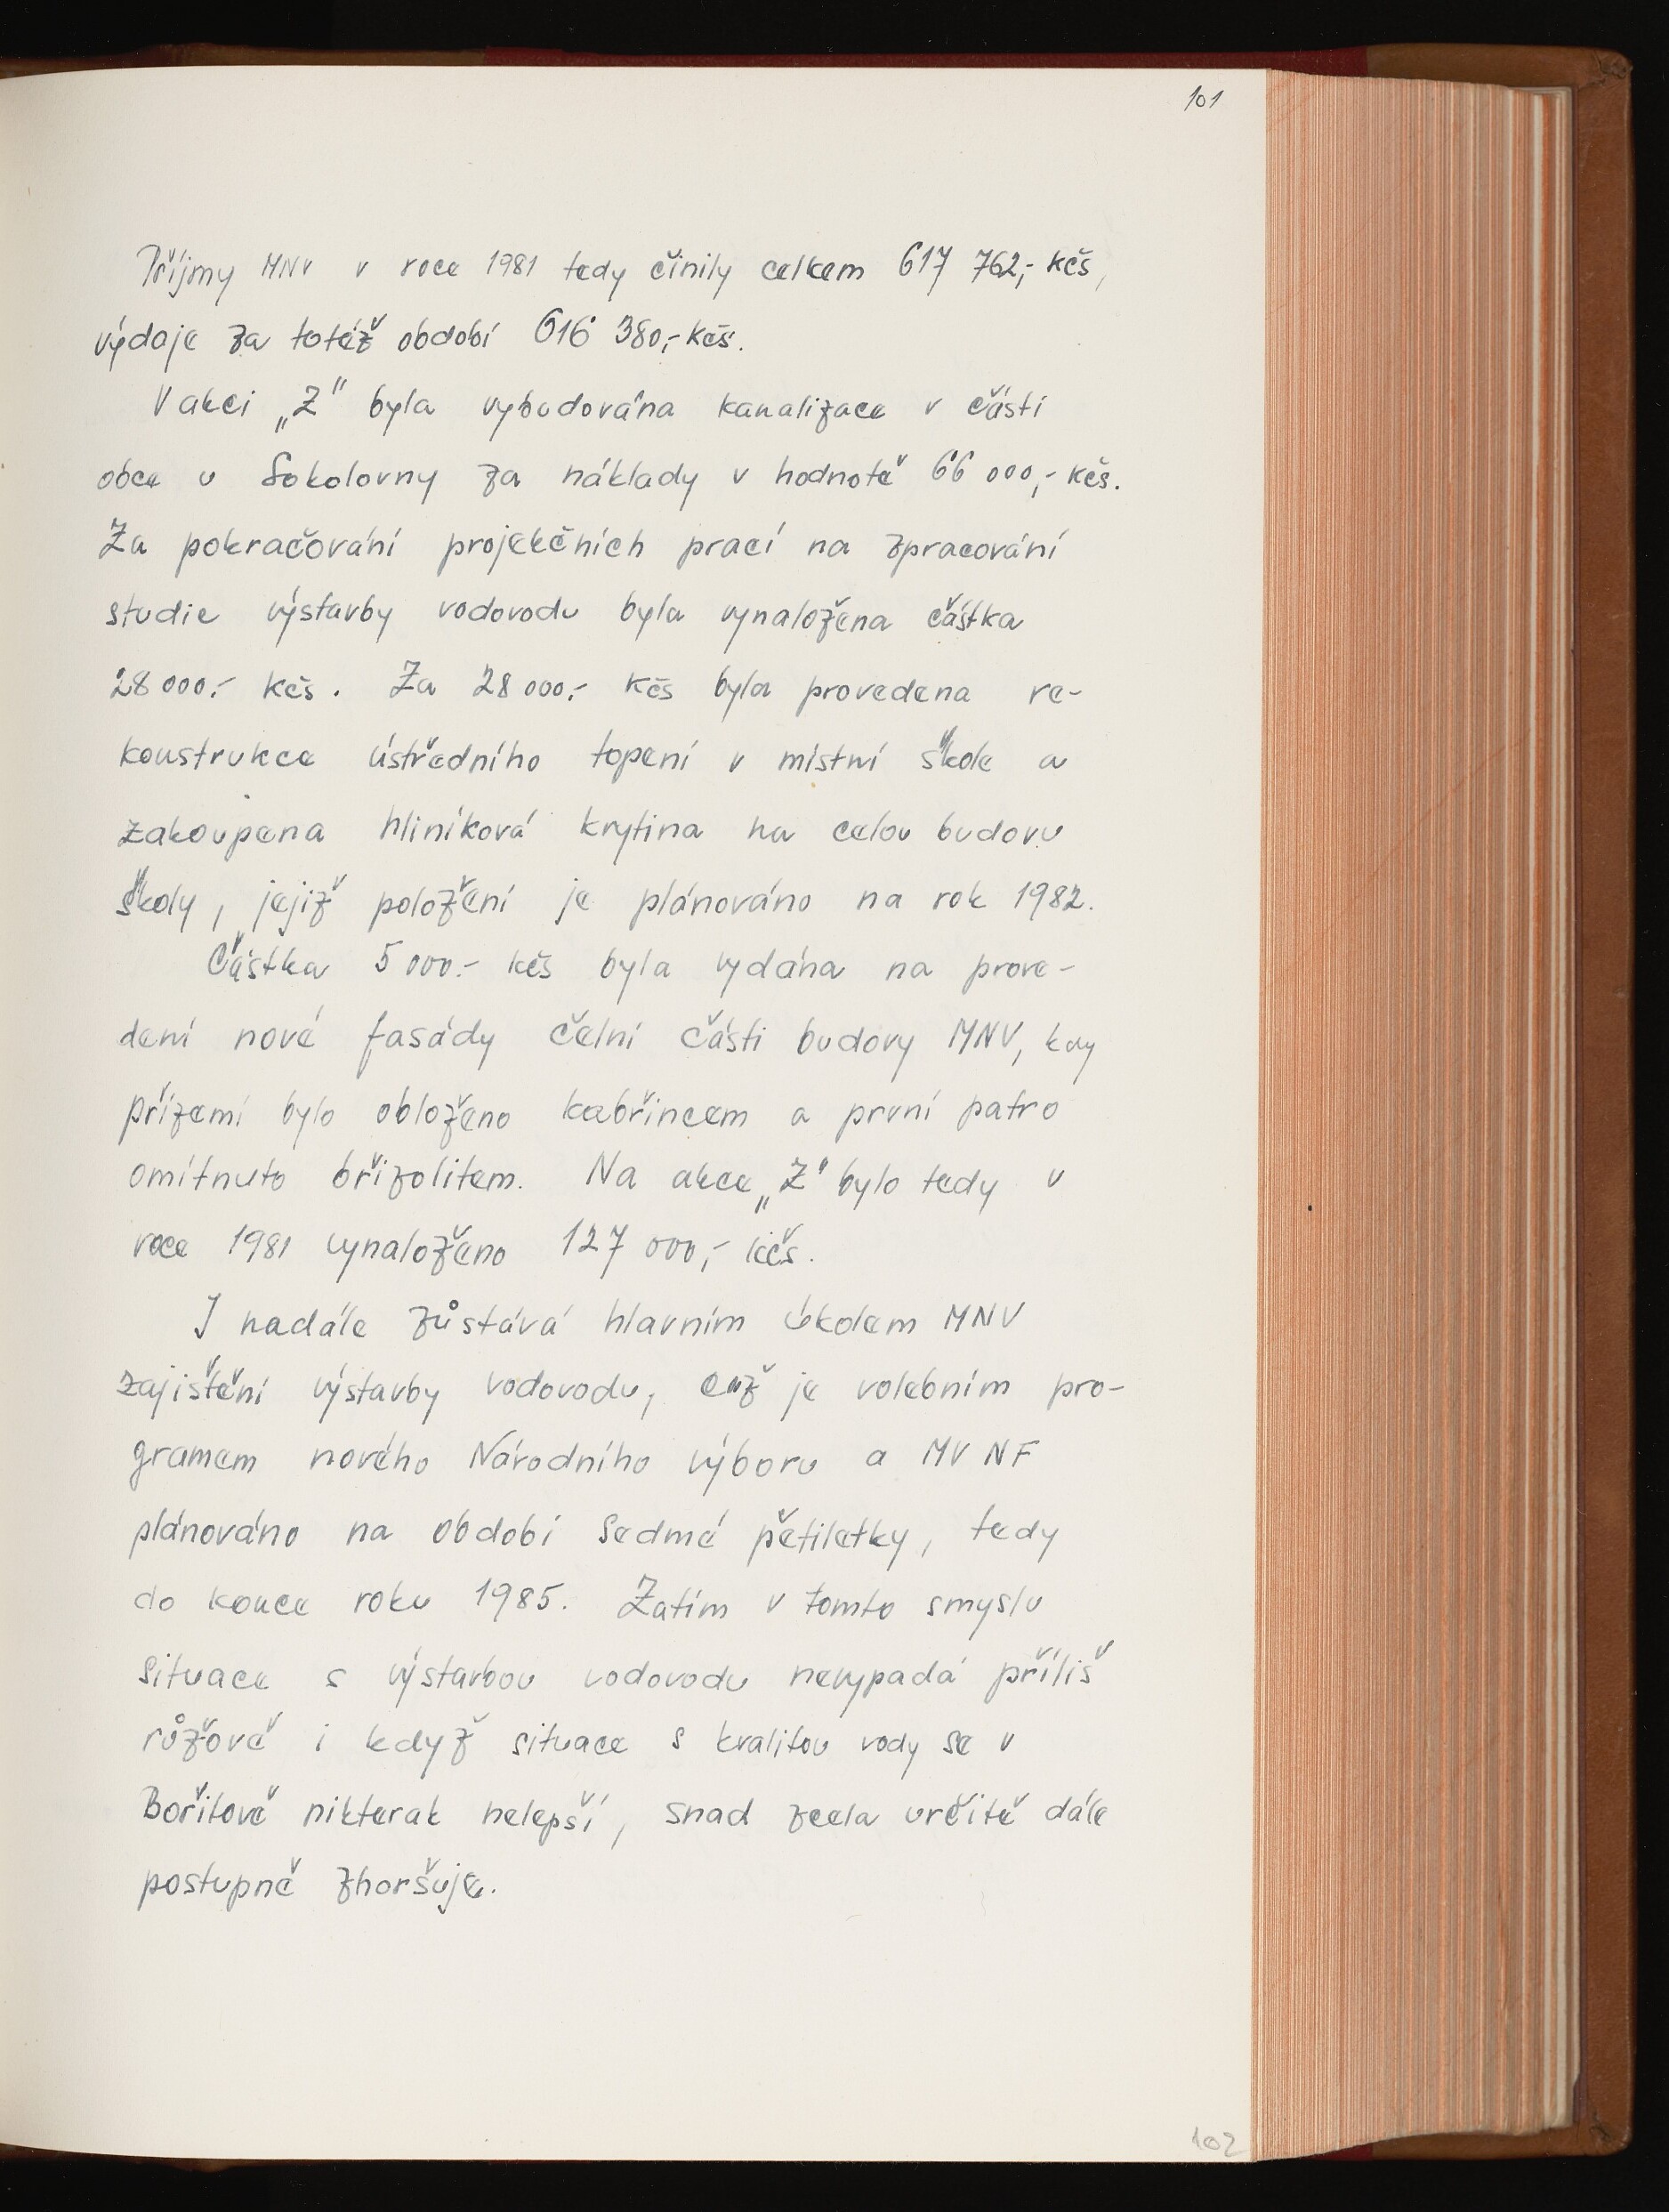 101
Příjmy MNV v roce 1981 tedy činily celkem 617 762,- kčs,
výdaje za totéž období 616 380,- kčs.
V akci „Z" byla vybudována kanalizace v části
obce u Sokolovny za náklady v hodnotě 66 000,- kčs.
Za pokračování projekčních prací na zpracování
studie výstavby vodovodu byla vynaložena částka
28 000.- kčs. Za 28 000.- kčs byla provedena re-
konstrukce ústředního topení v místní škole a
zakoupena hliníková krytina na celou budovu
školy, jejiž položení je plánováno na rok 1982.
Částka 5 000.- kčs byla vydána na prove-
dení nové fasády čelní části budovy MNV, kdy
přízemí bylo obloženo kabřincem a první patro
omítnuto břizolitem. Na akce „Z" bylo tedy v
roce 1981 vynaloženo 127 000,- kčs.
I nadále zůstává hlavním úkolem MNV
zajištění výstavby vodovodu, což je volebním pro-
gramem nového Národního výboru a MV NF
plánováno na období sedmé pětiletky, tedy
do konce roku 1985. Zatím v tomto smyslu
situace s výstavbou vodovodu nevypadá příliš
růžově i když situace s kvalitou vody se v
Bořitově nikterak nelepší, snad zcela určitě dále
postupně zhoršuje.
102